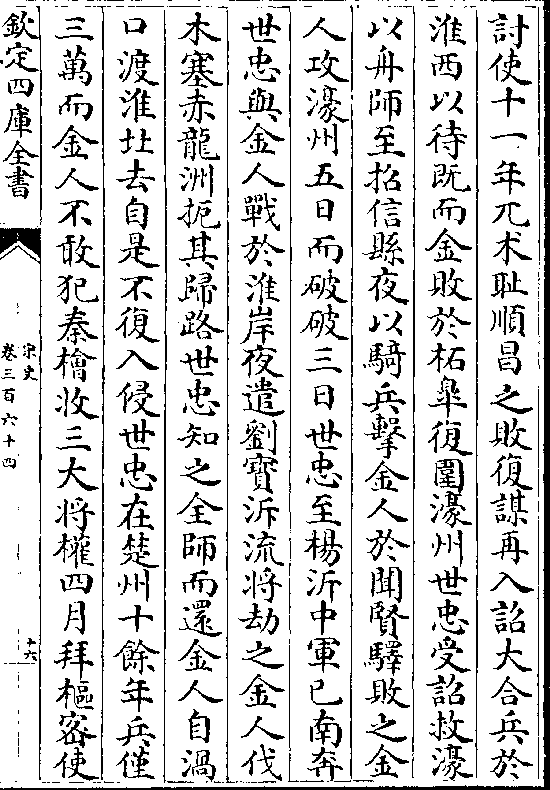 討使十一年兀朮耻順昌之敗復謀再入詔大合兵於
淮西以待既而金敗於柘臯復圍濠州世忠受詔救濠
以舟師至招信縣夜以騎兵擊金人於聞賢驛敗之金
人攻濠州五日而破破三日世忠至楊沂中軍已南奔
世忠與金人戰於淮岸夜遣劉寳泝流將劫之金人伐
木塞赤龍洲扼其歸路世忠知之全師而還金人自渦
口渡淮北去自是不復入侵世忠在楚州十餘年兵僅
三萬而金人不敢犯秦檜收三大將權四月拜樞密使
欽定四庫全書
宋史
卷三百六十四
十六